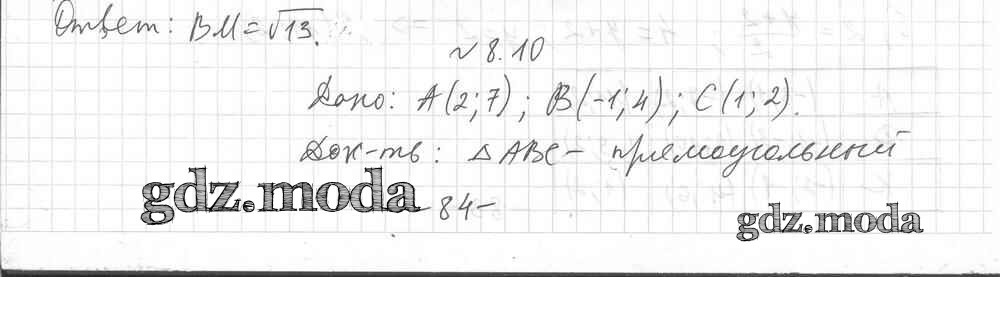 Ответ: BM = √13.
№ 8.10
Дано: A(2;7); B(-1;4); C(1;2).
Док-ть: △ABC - прямоугольный
gdz.moda
- 84 -
gdz.moda